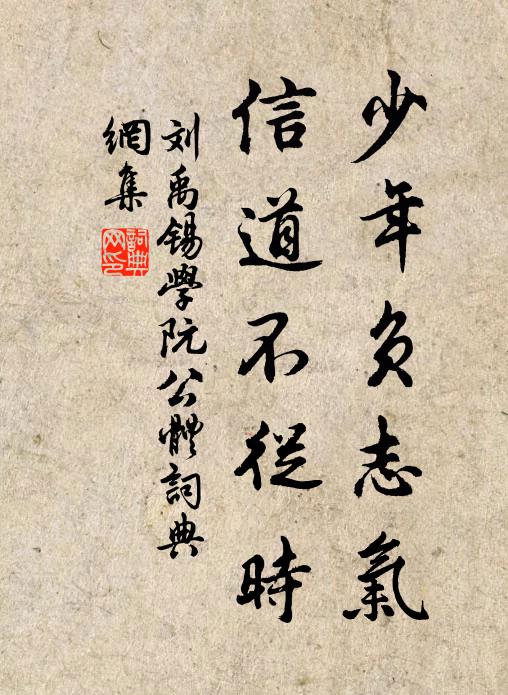 少年负志氣
信道不從時
刘禹锡學阮公體詞典
網集
詞典
网印